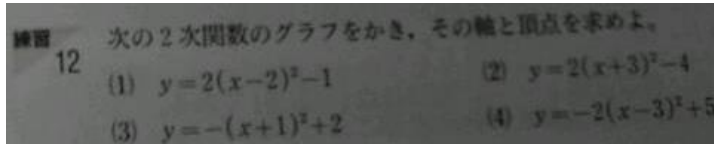 練習 12 次の2次関数のグラフをかき，その軸と頂点を求めよ。
(1) y=2(x−2)²−1 (2) y=2(x+3)²−4
(3) y=−(x+1)²+2 (4) y=−2(x−3)²+5